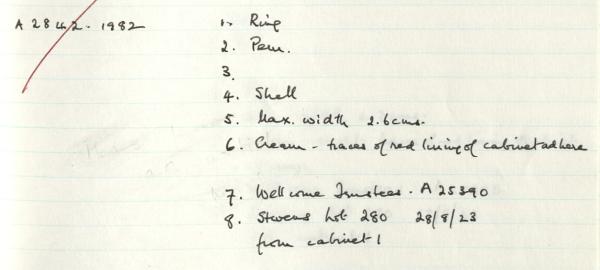 A 2842-1982 1. Ring
2. Peru.
3.
4. Shell
5. Max. width 2.6cms.
6. Cream - traces of red lining of cabinet adhere
7. Wellcome Trustees. A 25390
8. Stevens Lot 280 28/8/23
from cabinet 1